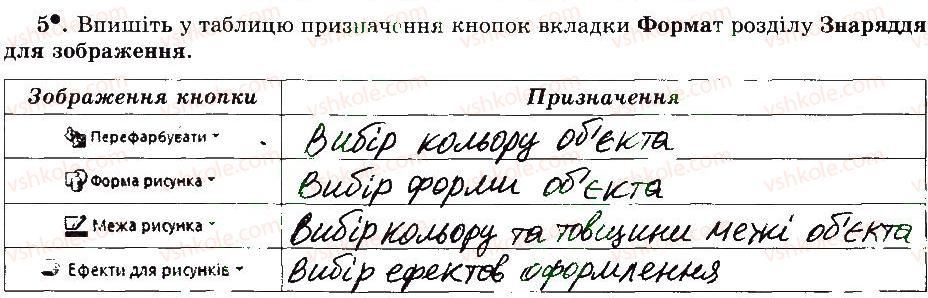 5•. Впишіть у таблицю призначення кнопок вкладки Формат розділу Знаряддя
для зображення.
Зображення кнопки Призначення
Перефарбувати Вибір кольору об'єкта
Форма рисунка Вибір форми об'єкта
Межа рисунка Вибір кольору та товщини межі об'єкта
Ефекти для рисунків Вибір ефектов оформлення